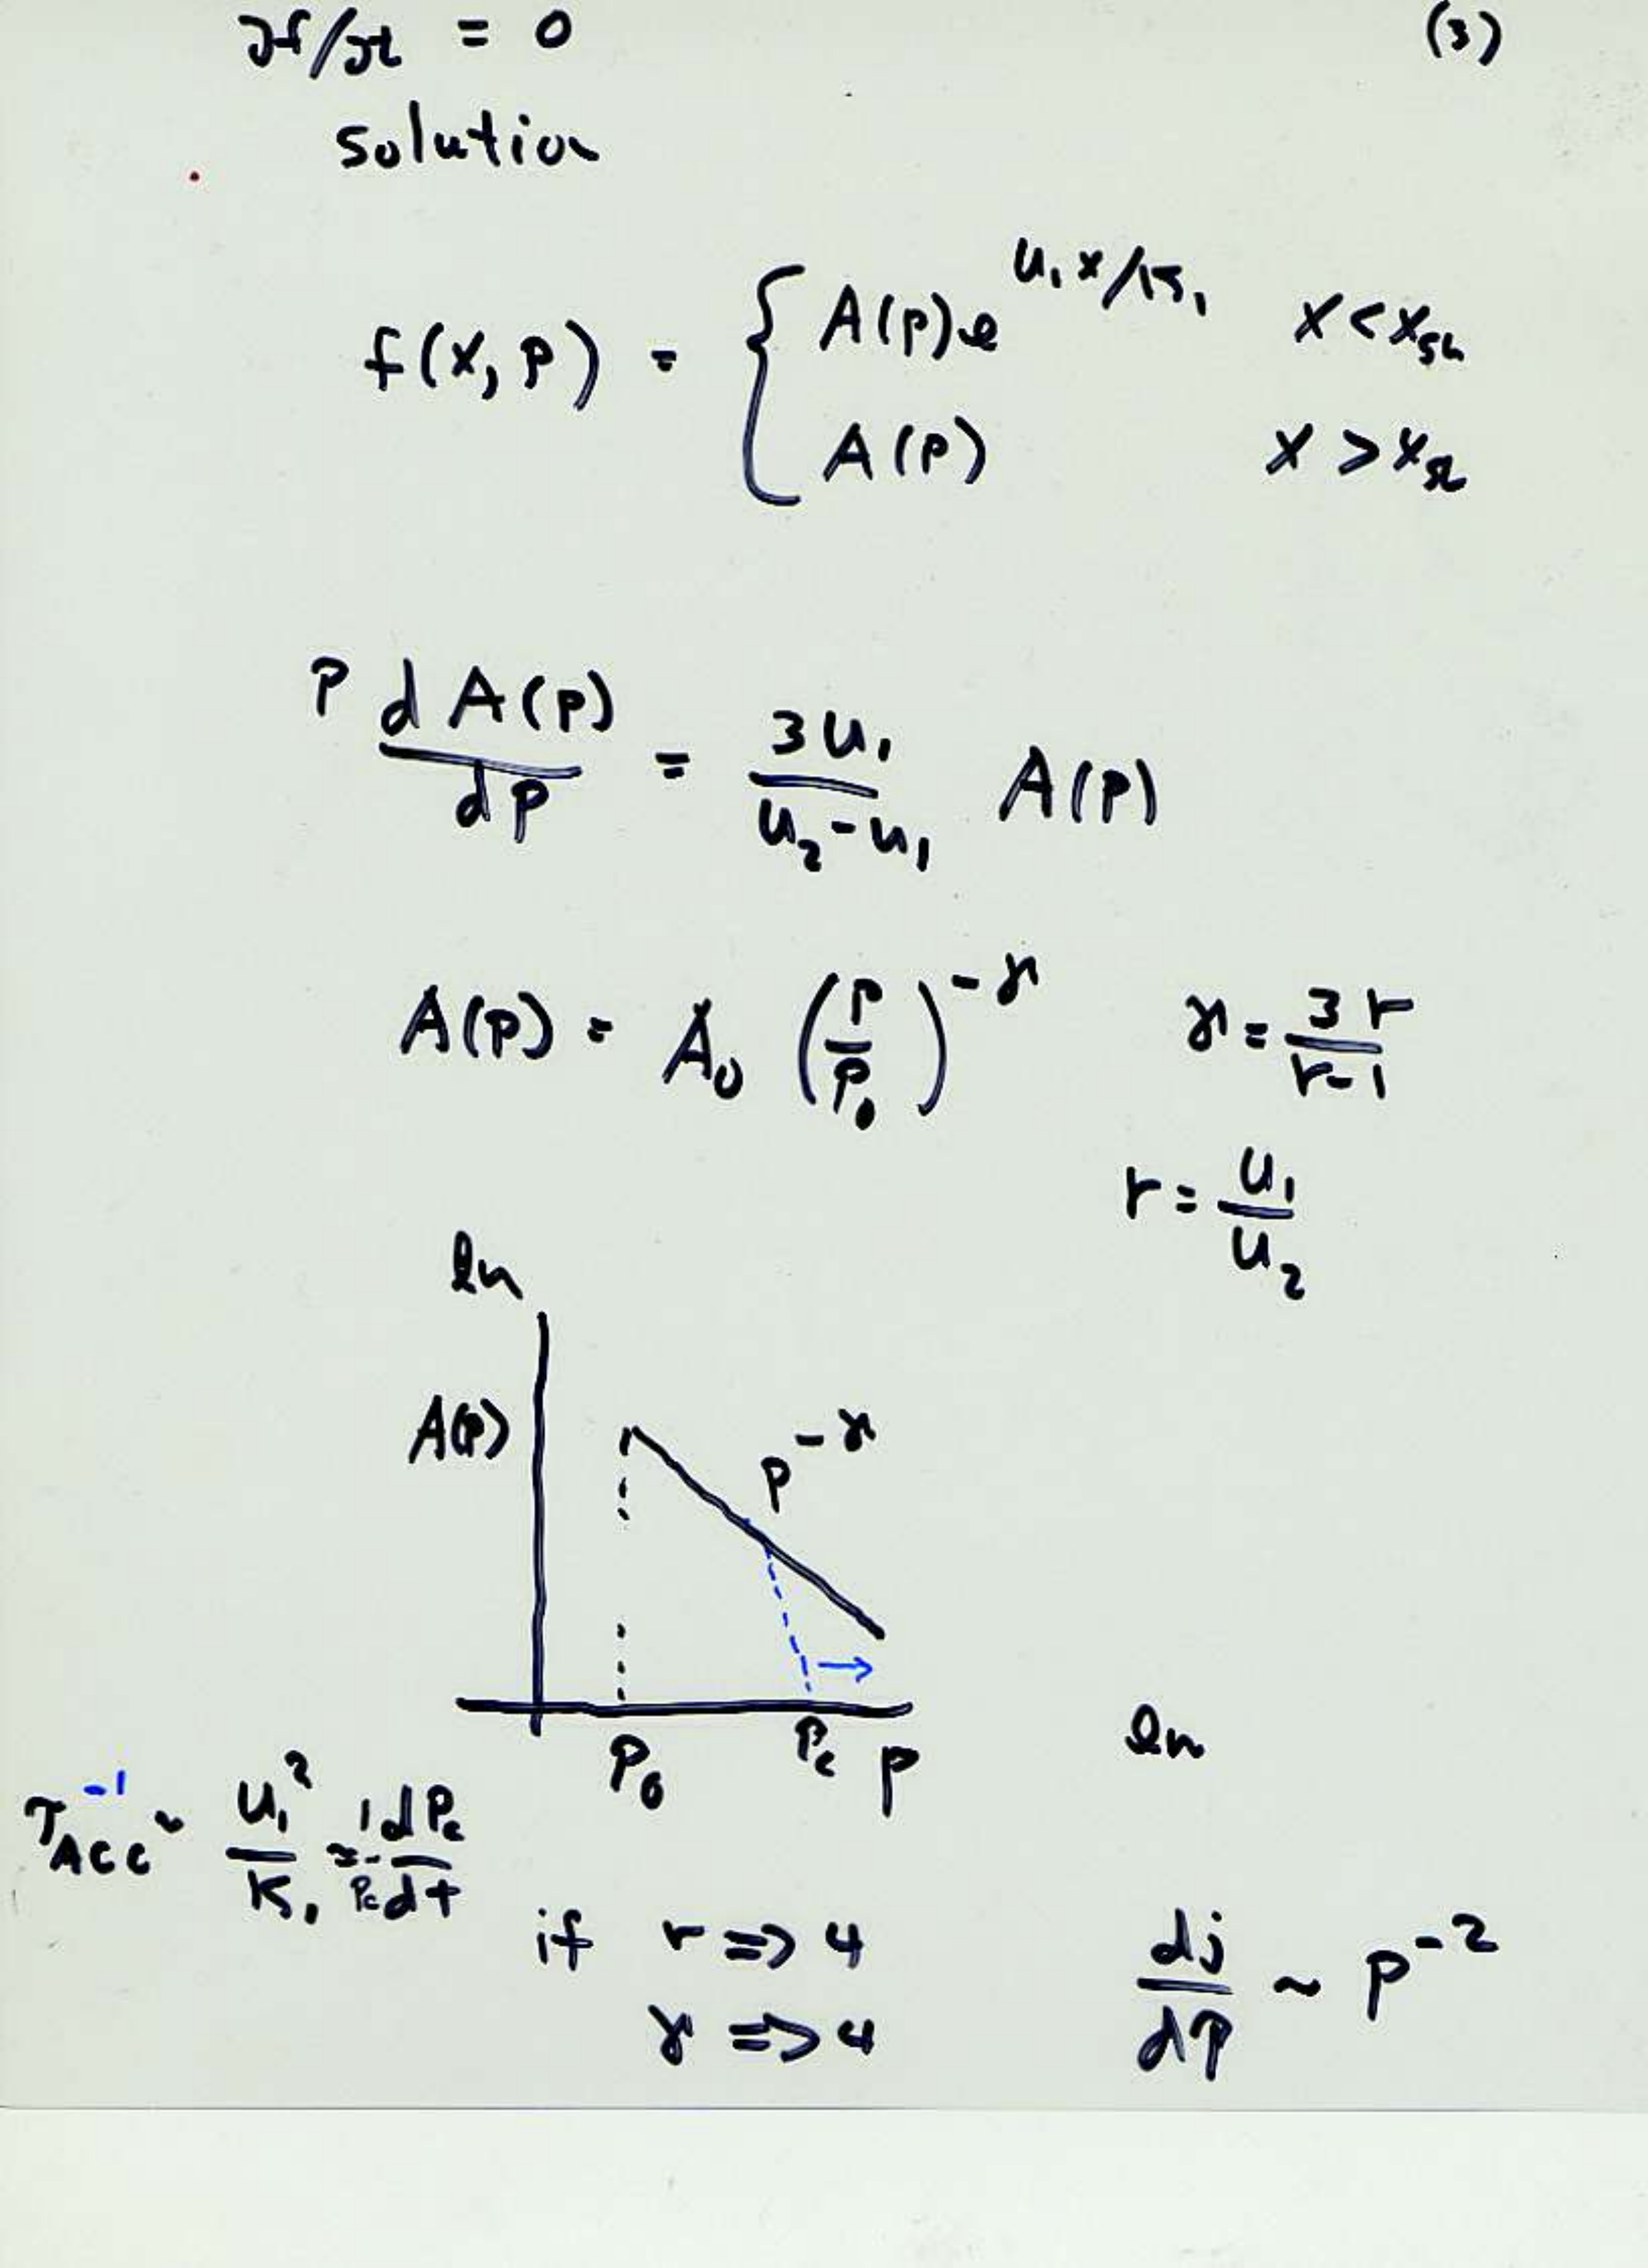 ∂f/∂t = 0 (3)
solution
f(x, p) = { A(p) e^{u₁x/κ₁} x < x_sh
A(p) x > x_sh
p dA(p)/dp = 3u₁/(u₂-u₁) A(p)
A(p) = A₀ (p/p₀)^{-γ} γ = 3r/(r-1)
r = u₁/u₂
ln
A(p)
p^{-γ}
p₀ p_c p ln
τ_ACC^{-1} ~ u₁²/κ₁ ≈ 1/p_c dp_c/dt
if r => 4 dj/dp ~ p^{-2}
γ => 4